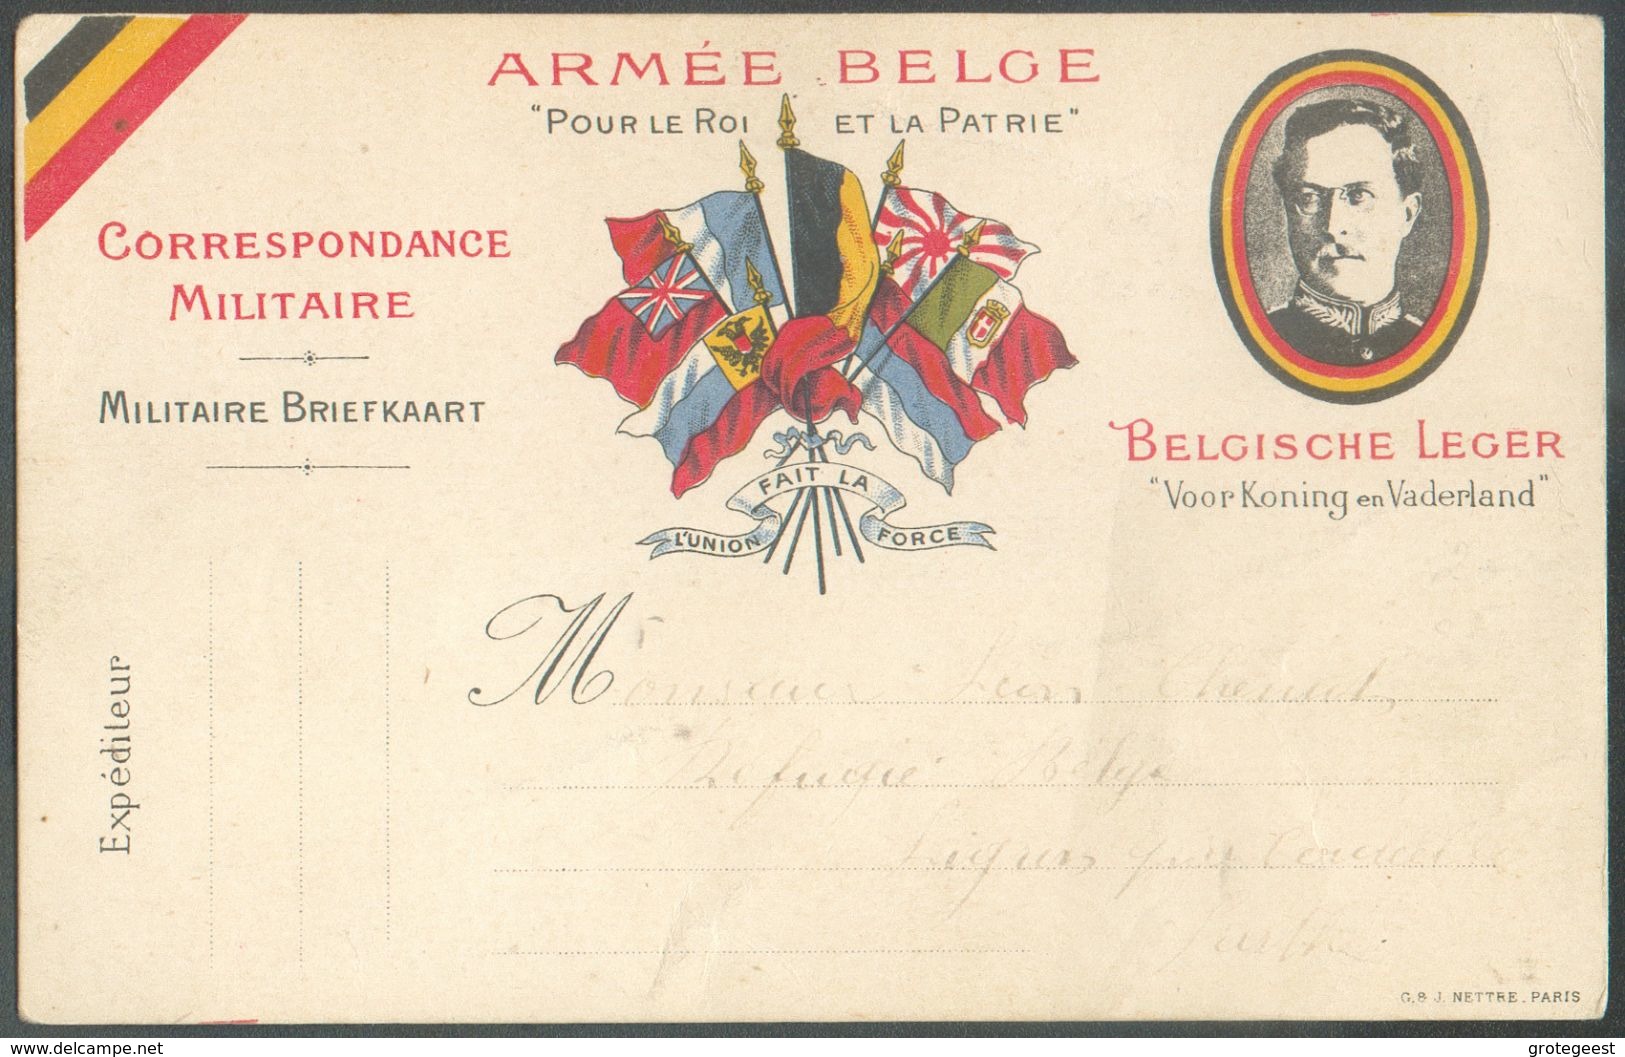 ARMÉE BELGE
"POUR LE ROI ET LA PATRIE"
CORRESPONDANCE
MILITAIRE
MILITAIRE BRIEFKAART
BELGISCHE LEGER
"Voor Koning en Vaderland"
L'UNION FAIT LA FORCE
Expéditeur
Monsieur
Réfugié Belge
Sarthe
G. & J. NETTRE. PARIS
www.delcampe.net
grotegeest